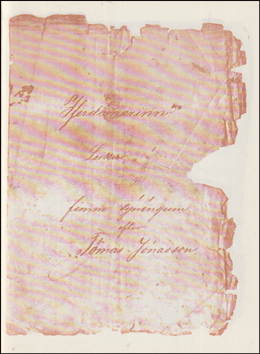 Yfirdómarinn
Leikur í
fimm sýningum
eftir
Tómas Jónasson